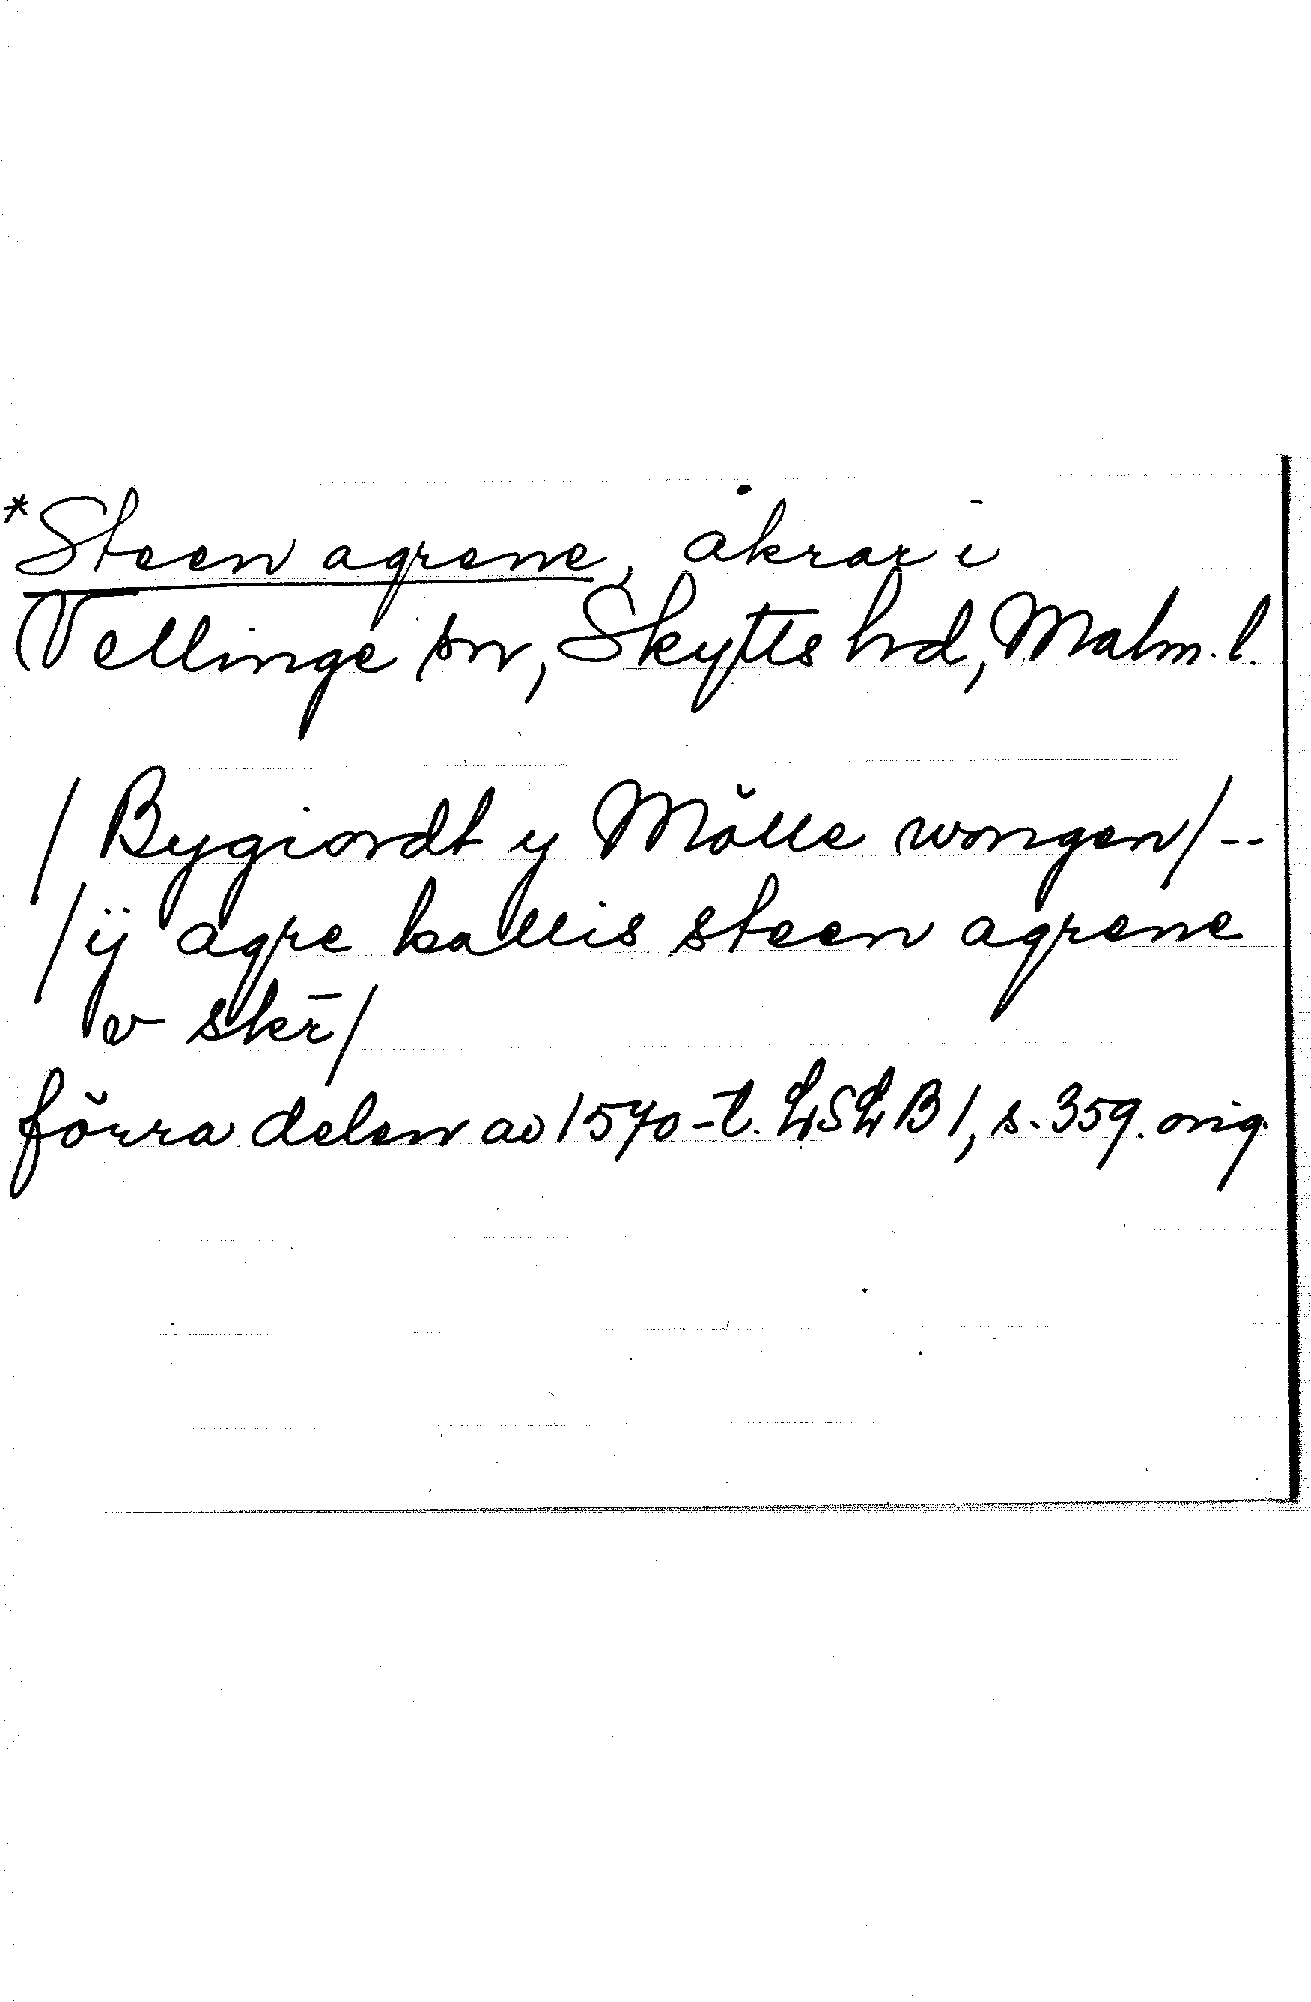 *Steen agrene, åkrar i
Vellinge sn, Skytts hrd, Malm. l.
/Bygiordt y Mölle wongen/--
/ÿ agre kallis steen agrene
v skr̄/
förra delen av 1570-t. LSLB1, s. 359. orig.